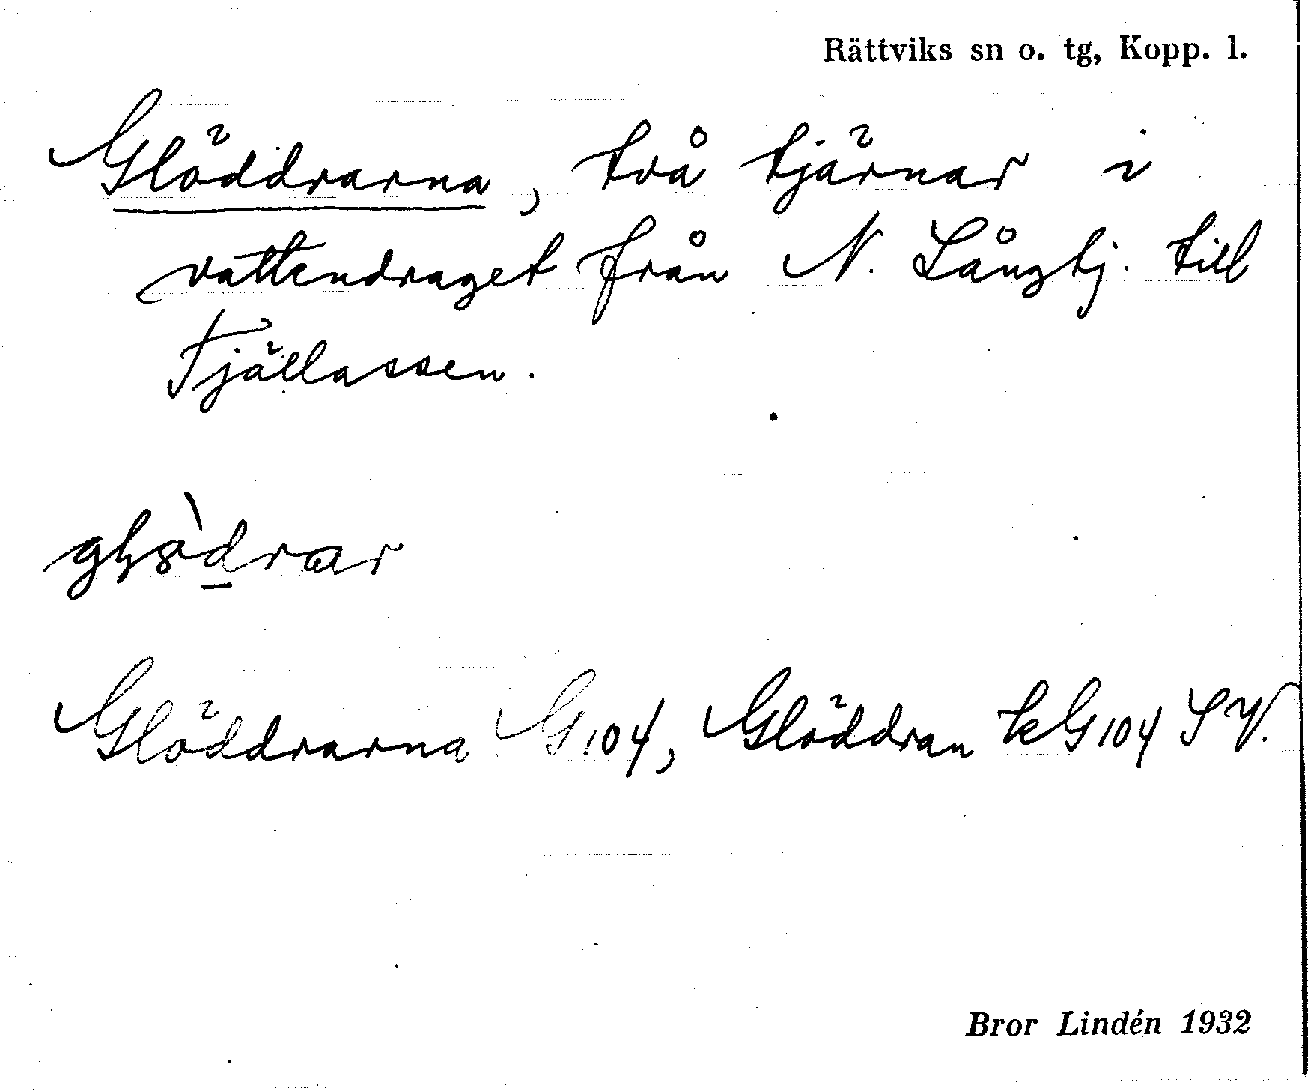 Rättviks sn o. tg, Kopp. l.
Glöddrarna, två tjärnar i
vattendraget från N. Långtj. till
Fjällassen.
Glöddrarna G104, Glöddran kG104 SV.
Bror Lindén 1932